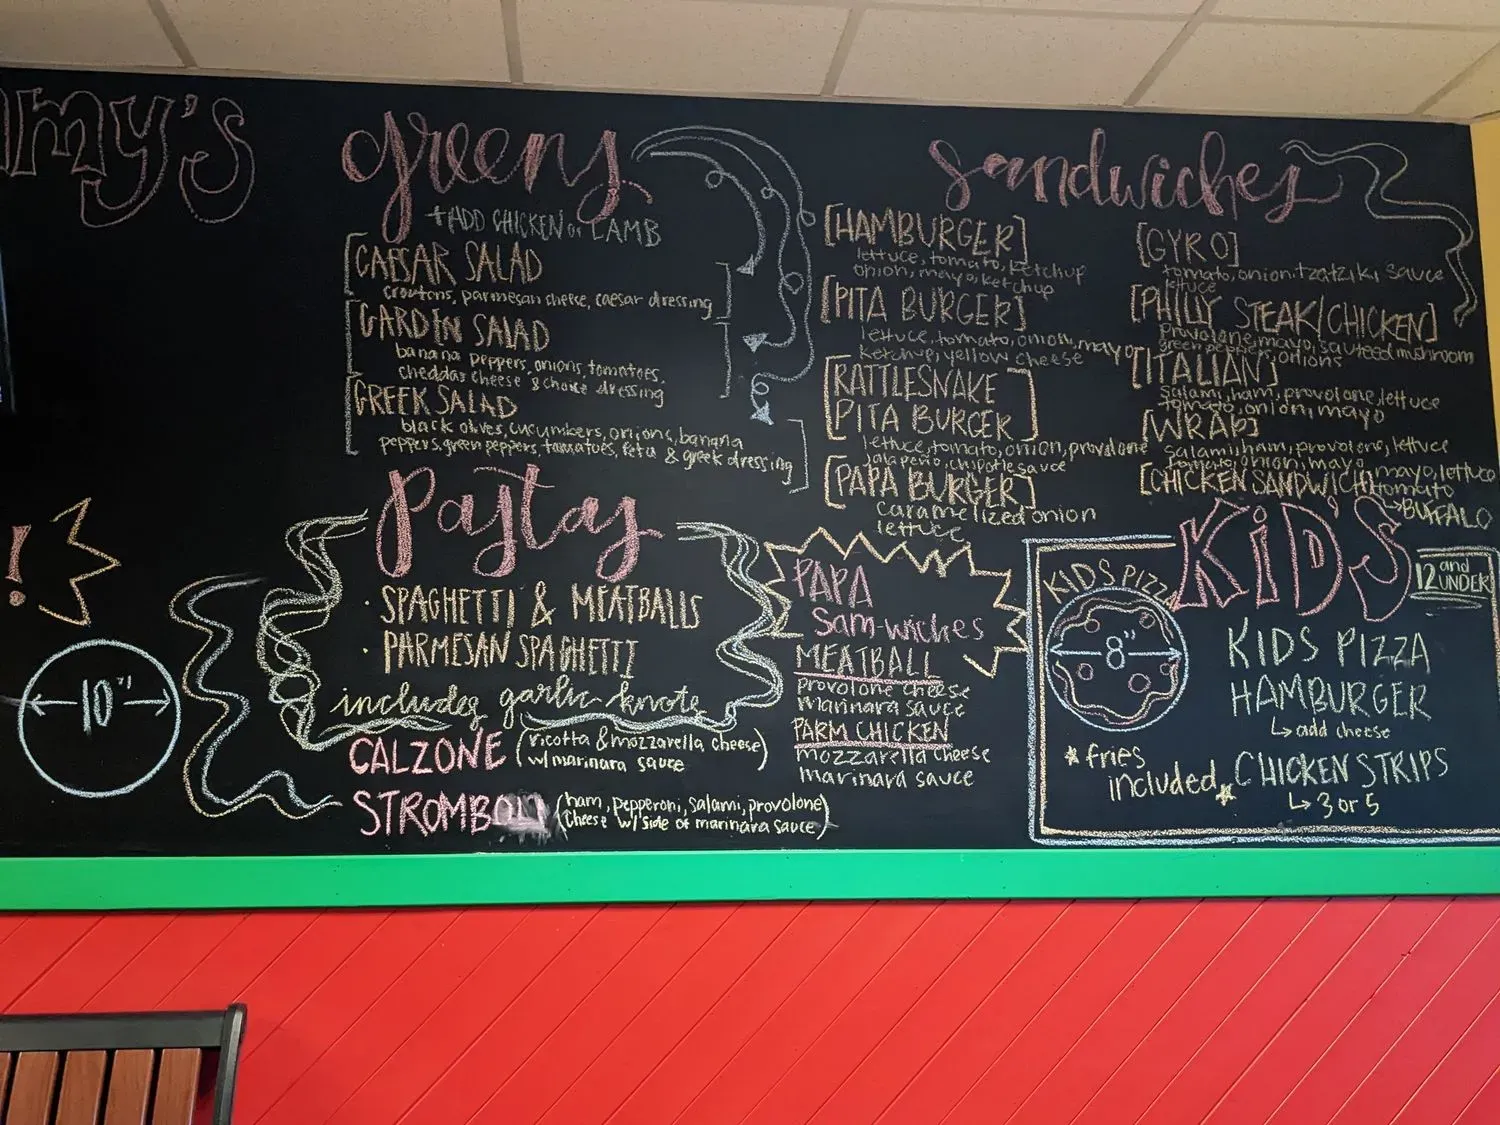 my's
greens
+ADD CHICKEN or LAMB
[CAESAR SALAD
croutons, parmesan cheese, caesar dressing]
[GARDEN SALAD
banana peppers, onions, tomatoes,
cheddar cheese & choice dressing
[GREEK SALAD
black olives, cucumbers, onions, banana
peppers, green peppers, tomatoes, feta & greek dressing]
Pastas
· SPAGHETTI & MEATBALLS
· PARMESAN SPAGHETTI
includes garlic knots
CALZONE (ricotta & mozzarella cheese)
w/ marinara sauce
STROMBOLI (ham, pepperoni, salami, provolone)
(cheese w/ side of marinara sauce)
!
10"
sandwiches
[HAMBURGER]
lettuce, tomato, ketchup
onion, mayo, ketchup
[PITA BURGER]
lettuce, tomato, onion, mayo
ketchup, yellow cheese
[RATTLESNAKE
PITA BURGER]
lettuce, tomato, onion, provolone
jalapeño, chipotle sauce
[PAPA BURGER]
caramelized onion
lettuce
[GYRO]
tomato, onion, tzatziki sauce
lettuce
[PHILLY STEAK/CHICKEN]
Provolone, mayo, sauteed mushroom
green peppers, onions
[ITALIAN]
salami, ham, provolone, lettuce
tomato, onion, mayo
[WRAP]
salami, ham, provolone, lettuce
tomato, onion, mayo
[CHICKEN SANDWICH] mayo, lettuce
tomato
BUFFALO
PAPA
Sam-wiches
MEATBALL
Provolone cheese
marinara sauce
PARM CHICKEN
mozzarella cheese
marinara sauce
KiD'S
12 and
UNDER
KIDS PIZZA
8"
KIDS PIZZA
HAMBURGER
↳ add cheese
CHICKEN STRIPS
↳ 3 or 5
* fries
included